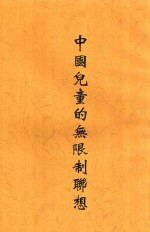 中國兒童的無限制聯想